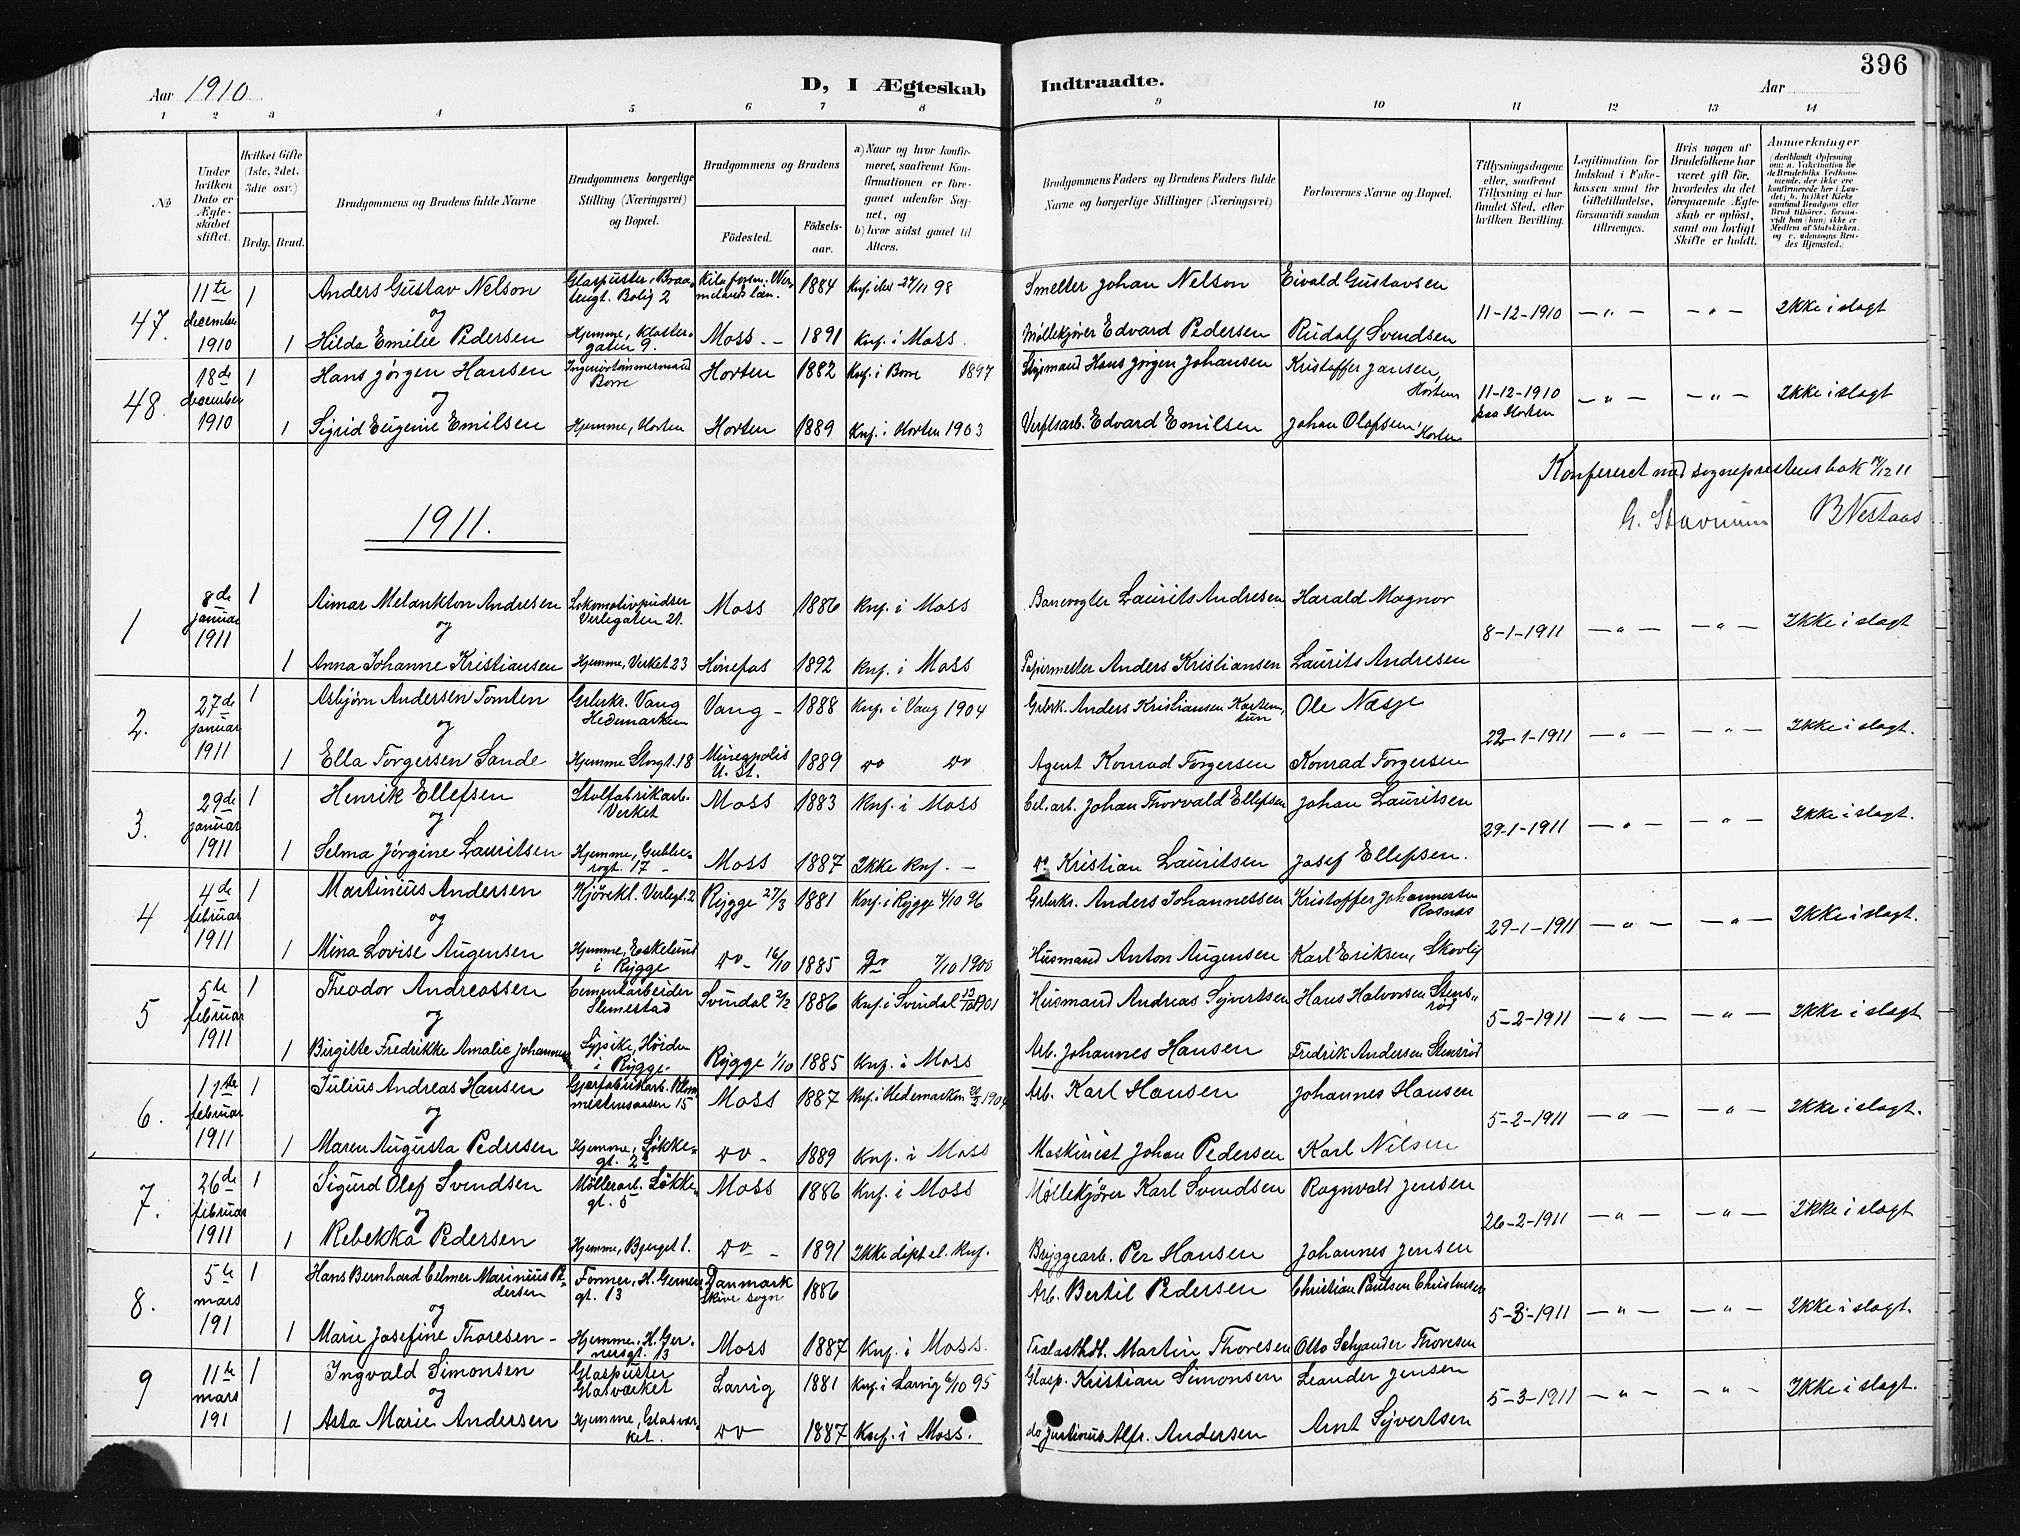 396
Aar 1910
D, I Ægteskab Indtraadte.
Aar
1 2 3 4 5 6 7 8 9 10 11 12 13 14
No
Under hvilken Dato er Ægteskabet stiftet.
Hvilket Gifte (1ste, 2det, 3die osv.)
Brdg. Brud.
Brudgommens og Brudens fulde Navne
Brudgommens borgerlige Stilling (Næringsvei) og Bopæl.
Brudgommens og Brudens
Fødested.
Fødselsaar.
a) Naar og hvor konfirmeret, saafremt Konfirmationen er foregaaet udenfor Sognet, og
b) hvor sidst gaaet til Alters.
Brudgommens Faders og Brudens Faders fulde Navne og borgerlige Stillinger (Næringsvei)
Forlovernes Navne og Bopæl.
Tillysningsdagene eller, saafremt Tillysning ei har fundet Sted, efter hvilken Bevilling.
Legitimation for Indskud i Enkekassen samt for Giftetilladelse, forsaavidt saadan tiltrænges.
Hvis nogen af Brudefolkene har været gift før, hvorledes da det foregaaende Ægteskab er opløst, samt om lovligt Skifte er holdt.
Anmerkninger
47. 11te december 1910 1 Anders Gustav Nelson Glaspuster, Braatengt. Bolig 2 Kila forsam. Wermelands län. 1884 Knf. 27/11 98 Smelter Johan Nelson Eivald Gustavsen
og 11-12-1910 — " — — " — Ikke i slegt
1 Hilda Emilie Pedersen Hjemme, Klostergaten 9. Moss — 1891 Knf. i Moss. Møllekjører Edvard Pedersen Rudolf Svendsen
48. 18de december 1910 1 Hans Jørgen Hansen Borre Horten 1882 Knf. i Borre 1897 Hans Jørgen Johansen Kristoffer Jansen, Horten
og 11-12-1910 paa Horten — " — — " — Ikke i slegt
1 Sigrid Eugenie Emilsen Hjemme, Horten Horten 1889 Knf. i Horten 1903 Verftsarb. Edvard Emilsen Johan Olafsen, Horten
Konfereret med sogneprestens bok 14/12 11
G. Stavrum B Nestaas
1911.
1 8de januar 1911 1 Aimar Melankton Andresen Lokomotivpudser Verlegaten 21. Moss 1886 Knf. i Moss Banevogter Laurits Andresen Harald Magnor
og 8-1-1911 — " — — " — Ikke i slegt
1 Anna Johanne Kristiansen Hjemme, Verket 23 Hønefos 1892 Knf. i Moss Papirmester Anders Kristiansen Laurits Andresen
2. 27de januar 1911 1 Asbjørn Andersen Tomten Grbrkr. Vang Hedemarken Vang — 1888 Knf. i Vang 1904 Grbrk. Anders Kristiansen Ole Næsje
og 22-1-1911 — " — — " — Ikke i slegt
1 Ella Torgersen Sande Hjemme Storgt. 18 Mineapolis U. St. 1889 do do Agent Konrad Torgersen Konrad Torgersen
3. 29de januar 1911 1 Henrik Ellefsen Stolfabrikarb. Verket Moss 1883 Knf. i Moss Cel. arb. Johan Thorvald Ellefsen Johan Lauritsen
og 29-1-1911 — " — — " — Ikke i slegt.
1 Selma Jørgine Lauritsen Hjemme, Gudbrrogt. 17 — Moss 1887 Ikke knf. — do Kristian Lauritsen Josef Ellefsen.
4 4de februar 1911 1 Martinius Andersen Kjørekl. Verlegt. 2 Rygge 27/3 1881 Knf. i Rygge 4/10 96 Grbrkr. Anders Johannessen Kristoffer Johannessen Rosnæs
og 29-1-1911 — " — — " — Ikke i slegt.
1 Mina Lovise Augensen Hjemme, Eskelund i Rygge do — 16/10 1885 do 7/10 1900 Husmand Anton Augensen Karl Eriksen, Skovly
5 5te februar 1911 1 Theodor Andreassen Cementarbeider Slemestad Svindal 2/2 1886 Knf. i Svindal 13/10 1901 Husmand Andreas Syvertsen Hans Halvorsen Stensrød
og 5-2-1911 — " — — " — Ikke i slegt
1 Birgitte Fredrikke Amalie Johannessen Sypike, Høiden i Rygge. Rygge 1/10 1885 Knf. i Moss Arb. Johannes Hansen Fredrik Andersen Stensrød
6. 11te februar 1911 1 Julius Andreas Hansen Gjærfabrikarb. 15 Moss 1887 Knf. i Hedemarken 1904 Arb. Karl Hansen Johannes Hansen
og 5-2-1911 — " — — " — Ikke i slegt.
1 Maren Augusta Pedersen Hjemme, Løkkegt. 2a do — 1889 Knf. i Moss Maskinist Johan Pedersen Karl Nilsen
7. 26de februar 1911 1 Sigurd Olaf Svendsen Møllerarb. Løkkegt. 5 Moss 1886 Knf. i Moss Møllekjører Karl Svendsen Ragnvald Jensen
og 26-2-1911 — " — — " — Ikke i slegt
1 Rebekka Pedersen Hjemme, Bjerget 1. do — 1891 Ikke døpt el. knf. Bryggearb. Per Hansen Johannes Jensen
8. 5te mars 191 1 Hans Bernhard Celmer Marinius Pedersen Former, H. Gernersgt. 13 Danmark Skive sogn 1886 Arb. Bertil Pedersen Christian Paulsen Christensen
og 5-3-1911 — " — — " — Ikke i slegt.
1 Marie Josefine Thoresen — Hjemme, H. Gernersgt. 13 Moss 1887 Knf. i Moss. Trælasthdl. Martin Thoresen Otto Schjander Thoresen
9 11te mars 191 1 Ingvald Simonsen Glaspuster Glasværket Larvig 1881 Knf. i Larvig 6/10 95 Glasp. Kristian Simonsen Leander Jensen
og 5-3-1911 — " — — " — Ikke i slegt.
1 Asta Marie Andersen Hjemme, Glasværket. do 1887 Knf. i Moss. do Justinus Alfr. Andersen Arnt Syvertsen